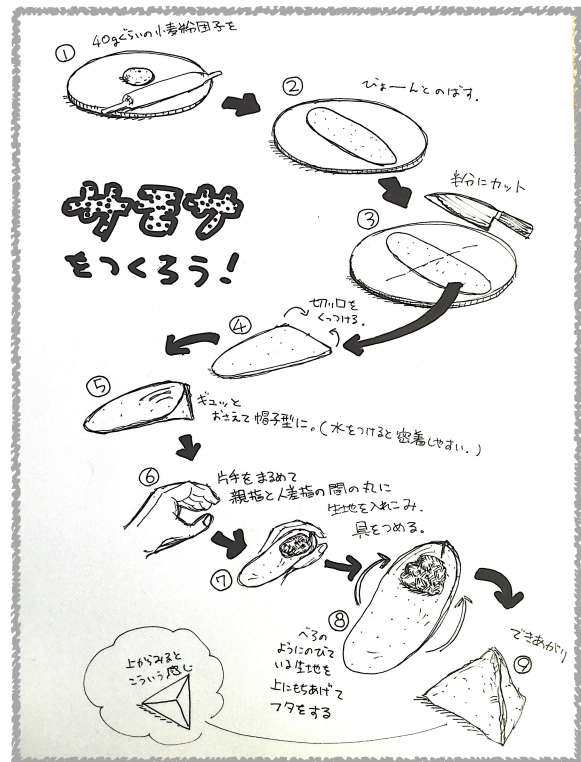 ① 40gぐらいの小麦粉団子を
② びよーんとのばす.
サモサ
をつくろう!
半分にカット
③
④ 切り口を
くっつける.
⑤ ギュッと
おさえて帽子型に。(水をつけると密着しやすい.)
⑥ 片手をまるめて
親指と人差指の間の丸に
生地を入れこみ.
具をつめる。
⑦
⑧ べろの
ようにのびて
いる生地を
上にもちあげて
フタをする
できあがり
⑨
上からみると
こういう感じ